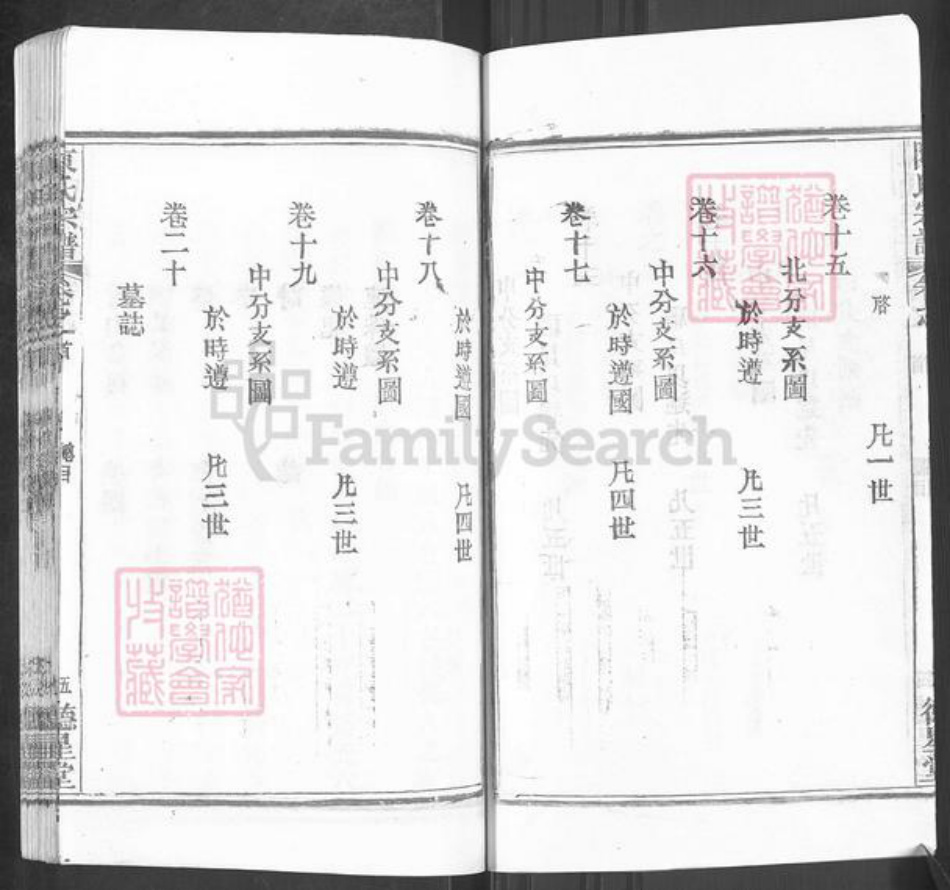 啓 凡一世
卷十五
北分支系圖
於時遵 凡三世
卷十六
中分支系圖
於時遵國 凡四世
卷十七
中分支系圖
於時遵國 凡四世
卷十八
中分支系圖
於時遵 凡三世
卷十九
中分支系圖
於時遵 凡三世
卷二十
墓誌
氏宗譜
卷之首
總目
五
德星堂
德星堂
譜學會
收藏
譜學會
收藏
FamilySearch